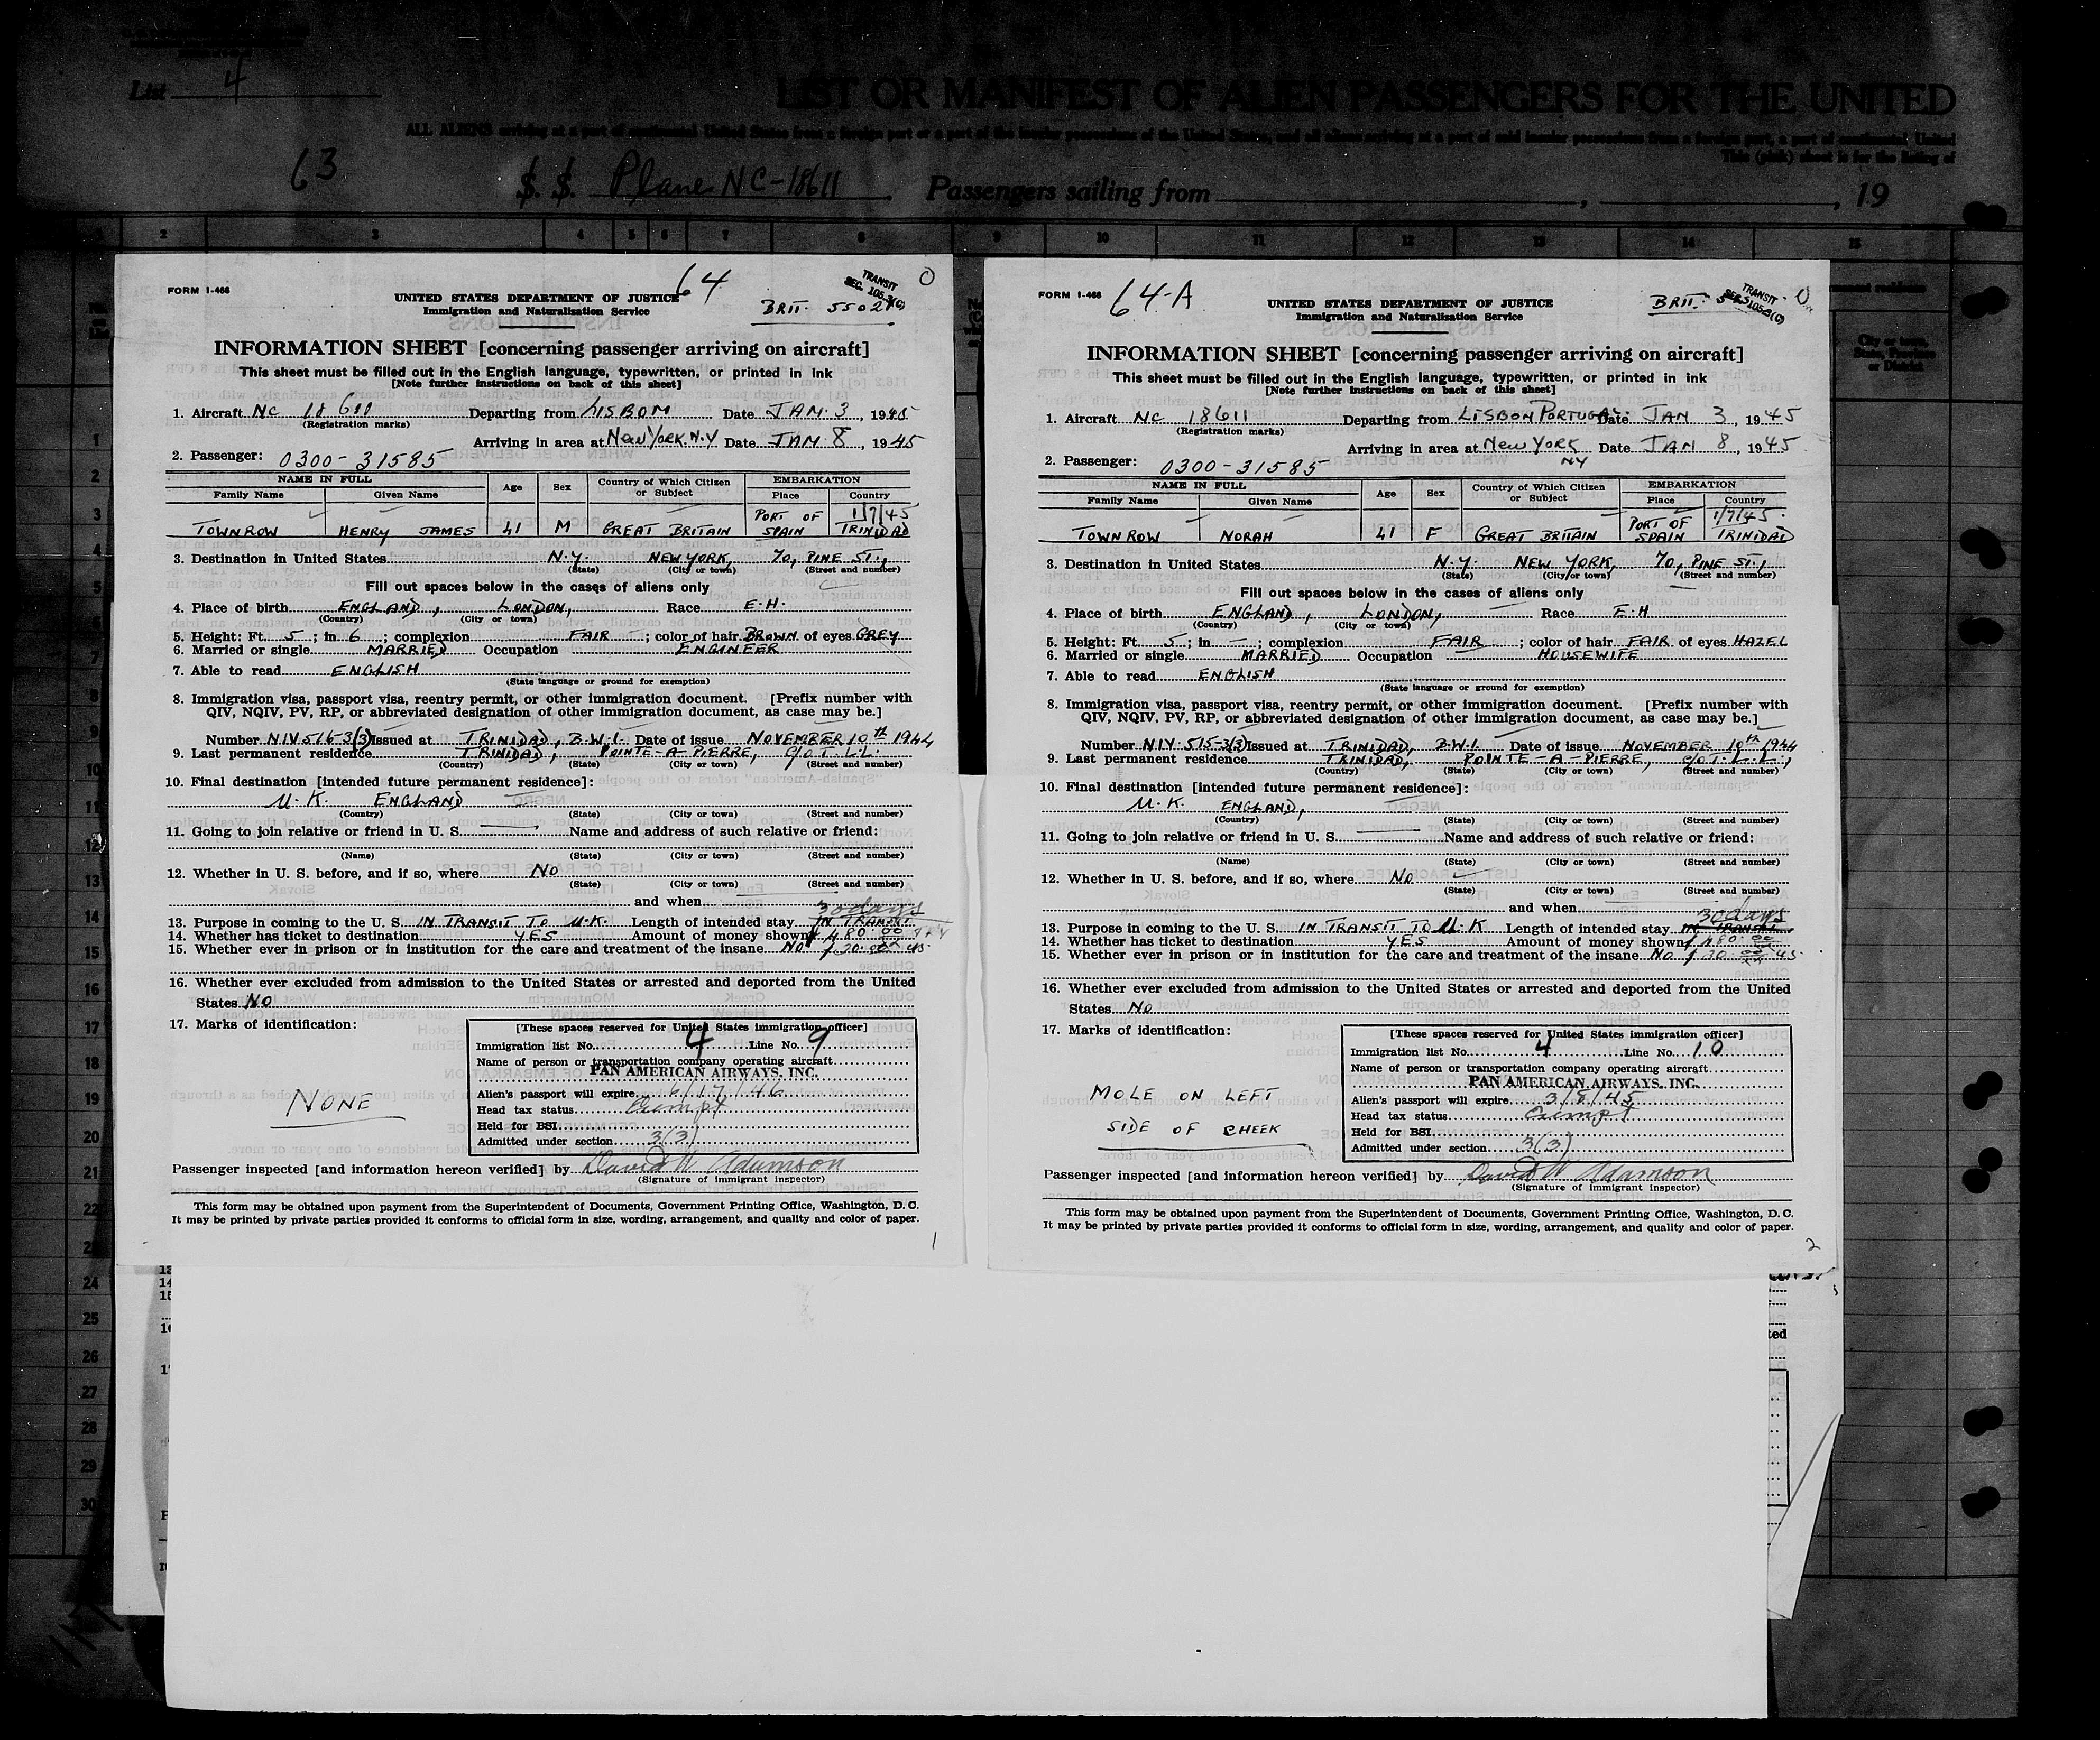 List 4
LIST OR MANIFEST OF ALIEN PASSENGERS FOR THE UNITED
ALL ALIENS arriving at a port of continental United States from a foreign port or a port of the insular possessions of the United States, and all aliens arriving at a port of said insular possessions from a foreign port, a port of continental United
This (pink) sheet is for the listing of
63 S. S. Plane NC-18611 Passengers sailing from , 19
2 3 4 5 6 7 8 9 10 11 12 13 14 15
FORM I-466
64
TRANSIT
SEC. 105.3(C)
UNITED STATES DEPARTMENT OF JUSTICE
Immigration and Naturalization Service
BRIT. 5502
INFORMATION SHEET [concerning passenger arriving on aircraft]
This sheet must be filled out in the English language, typewritten, or printed in ink
[Note further instructions on back of this sheet]
1. Aircraft NC 18611 Departing from LISBON Date JAN 3, 1945
(Registration marks)
Arriving in area at New York N.Y Date JAN 8, 1945
2. Passenger: 0300-31585
NAME IN FULL Age Sex Country of Which Citizen or Subject EMBARKATION
Family Name Given Name Place Country
1/7/45
TOWNROW HENRY JAMES 41 M GREAT BRITAIN PORT OF SPAIN TRINIDAD
3. Destination in United States N.Y. NEW YORK, 70, PINE ST.,
(State) (City or town) (Street and number)
Fill out spaces below in the cases of aliens only
4. Place of birth ENGLAND, LONDON, Race E.H.
(Country) (City or town)
5. Height: Ft. 5; in 6; complexion FAIR; color of hair BROWN of eyes GREY
6. Married or single MARRIED Occupation ENGINEER
7. Able to read ENGLISH
(State language or ground for exemption)
8. Immigration visa, passport visa, reentry permit, or other immigration document. [Prefix number with
QIV, NQIV, PV, RP, or abbreviated designation of other immigration document, as case may be.]
Number NIV 516-3(3) Issued at TRINIDAD, B.W.I. Date of issue NOVEMBER 10th 1944
9. Last permanent residence TRINIDAD, POINTE-A-PIERRE, C/O T.L.L.
(Country) (State) (City or town) (Street and number)
10. Final destination [intended future permanent residence]:
U.K. ENGLAND
(Country) (State) (City or town) (Street and number)
11. Going to join relative or friend in U. S. Name and address of such relative or friend:
(Name) (State) (City or town) (Street and number)
12. Whether in U. S. before, and if so, where NO
(State) (City or town) (Street and number)
and when
30 days
13. Purpose in coming to the U. S. IN TRANSIT TO U.K. Length of intended stay IN TRANSIT
14. Whether has ticket to destination YES Amount of money shown $ 480.00
15. Whether ever in prison or in institution for the care and treatment of the insane NO
16. Whether ever excluded from admission to the United States or arrested and deported from the United
States NO
17. Marks of identification:
NONE
[These spaces reserved for United States immigration officer]
Immigration list No. 4 Line No. 9
Name of person or transportation company operating aircraft
PAN AMERICAN AIRWAYS, INC.
Alien's passport will expire 6/17/46
Head tax status Exempt
Held for BSI
Admitted under section 3(3)
Passenger inspected [and information hereon verified] by David W Adamson
(Signature of immigrant inspector)
This form may be obtained upon payment from the Superintendent of Documents, Government Printing Office, Washington, D. C.
It may be printed by private parties provided it conforms to official form in size, wording, arrangement, and quality and color of paper.
1
FORM I-466
64-A
TRANSIT
SEC. 105.3(C)
UNITED STATES DEPARTMENT OF JUSTICE
Immigration and Naturalization Service
BRIT.
INFORMATION SHEET [concerning passenger arriving on aircraft]
This sheet must be filled out in the English language, typewritten, or printed in ink
[Note further instructions on back of this sheet]
1. Aircraft NC 18611 Departing from LISBON PORTUGAL Date JAN 3, 1945
(Registration marks)
Arriving in area at New York NY Date JAN 8, 1945
2. Passenger: 0300-31585
NAME IN FULL Age Sex Country of Which Citizen or Subject EMBARKATION
Family Name Given Name Place Country
1/7/45
TOWNROW NORAH 41 F GREAT BRITAIN PORT OF SPAIN TRINIDAD
3. Destination in United States N.Y. NEW YORK, 70, PINE ST.,
(State) (City or town) (Street and number)
Fill out spaces below in the cases of aliens only
4. Place of birth ENGLAND, LONDON, Race E.H
(Country) (City or town)
5. Height: Ft. 5; in —; complexion FAIR; color of hair FAIR of eyes HAZEL
6. Married or single MARRIED Occupation HOUSEWIFE
7. Able to read ENGLISH
(State language or ground for exemption)
8. Immigration visa, passport visa, reentry permit, or other immigration document. [Prefix number with
QIV, NQIV, PV, RP, or abbreviated designation of other immigration document, as case may be.]
Number NIV. 515-3(3) Issued at TRINIDAD, B.W.I. Date of issue NOVEMBER 10th 1944
9. Last permanent residence TRINIDAD, POINTE-A-PIERRE, C/O T.L.L.,
(Country) (State) (City or town) (Street and number)
10. Final destination [intended future permanent residence]:
U.K. ENGLAND,
(Country) (State) (City or town) (Street and number)
11. Going to join relative or friend in U. S. Name and address of such relative or friend:
(Name) (State) (City or town) (Street and number)
12. Whether in U. S. before, and if so, where NO
(State) (City or town) (Street and number)
and when
30 days
13. Purpose in coming to the U. S. IN TRANSIT TO U.K Length of intended stay IN TRANSIT
14. Whether has ticket to destination YES Amount of money shown
15. Whether ever in prison or in institution for the care and treatment of the insane NO
16. Whether ever excluded from admission to the United States or arrested and deported from the United
States NO
17. Marks of identification:
MOLE ON LEFT
SIDE OF CHEEK
[These spaces reserved for United States immigration officer]
Immigration list No. 4 Line No. 10
Name of person or transportation company operating aircraft
PAN AMERICAN AIRWAYS, INC.
Alien's passport will expire 3/8/45
Head tax status Exempt
Held for BSI
Admitted under section 3(3)
Passenger inspected [and information hereon verified] by David W Adamson
(Signature of immigrant inspector)
This form may be obtained upon payment from the Superintendent of Documents, Government Printing Office, Washington, D. C.
It may be printed by private parties provided it conforms to official form in size, wording, arrangement, and quality and color of paper.
2